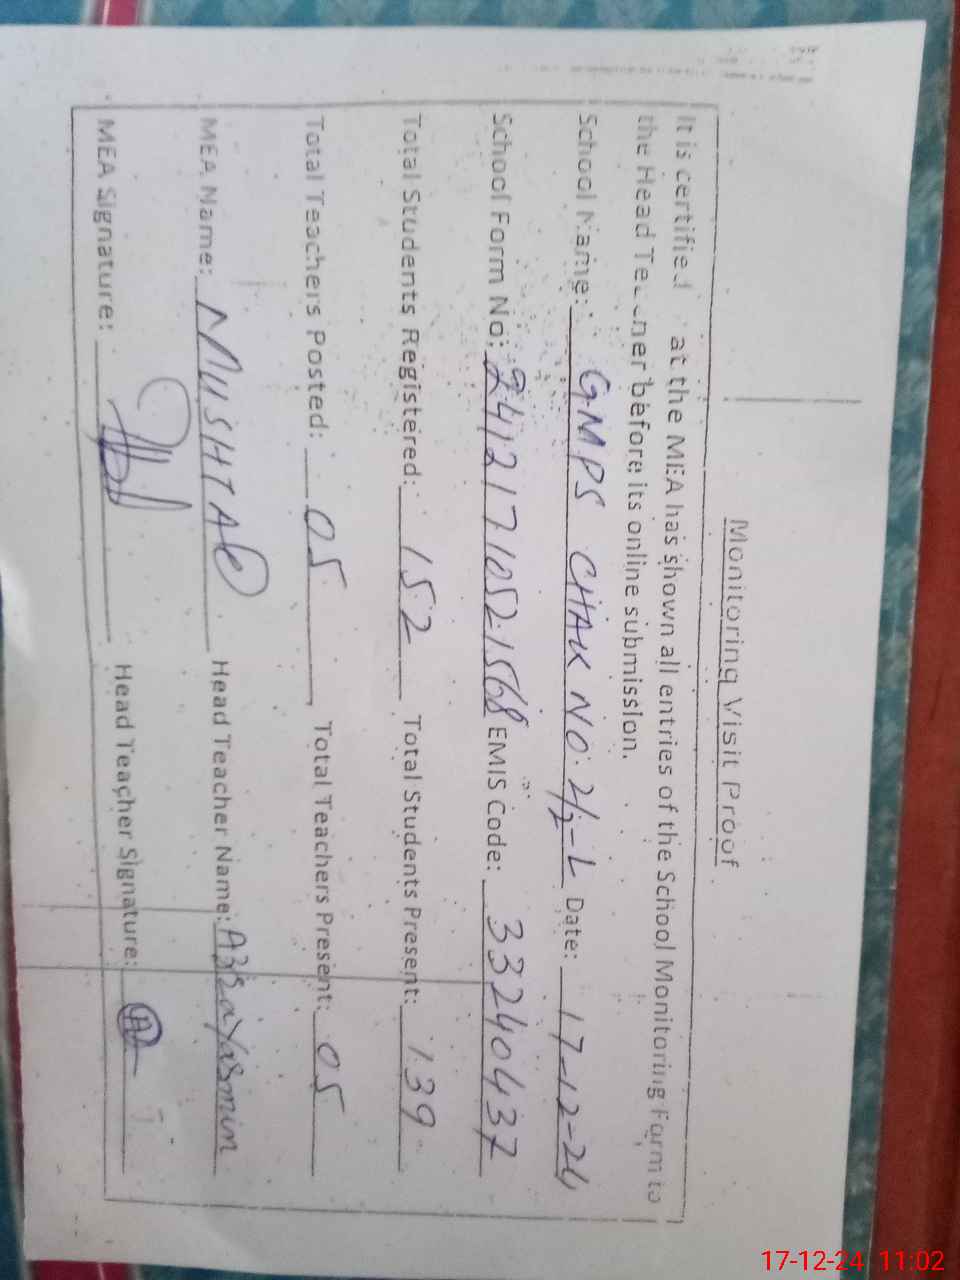 Monitoring Visit Proof
It is certified at the MEA has shown all entries of the School Monitoring Form to
the Head Teacher before its online submission.
School Name: GMPS CHAK NO. 2/2-L Date: 17-12-24
School Form No: 24121710521568 EMIS Code: 33240437
Total Students Registered: 152 Total Students Present: 139
Total Teachers Posted: 05 Total Teachers Present: 05
MEA Name: MUSHTAQ Head Teacher Name: Yasmin
MEA Signature: Head Teacher Signature:
17-12-24 11:02